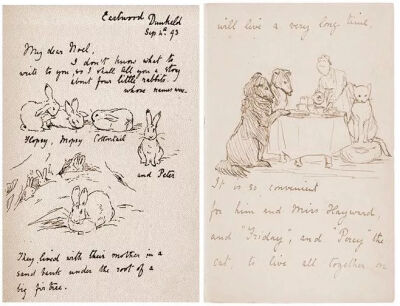 Eastwood Dunkeld
Sep 4th 93
My dear Noel,
I don't know what to
write to you, so I shall tell you a story
about four little rabbits
whose names were
Flopsy, Mopsy Cottontail
and Peter
They lived with their mother in a
sand bank under the root of a
big fir tree.
will live a very long time.
It is so convenient
for him and Miss Hayward,
and "Friday", and "Percy" the
cat, to live all together on